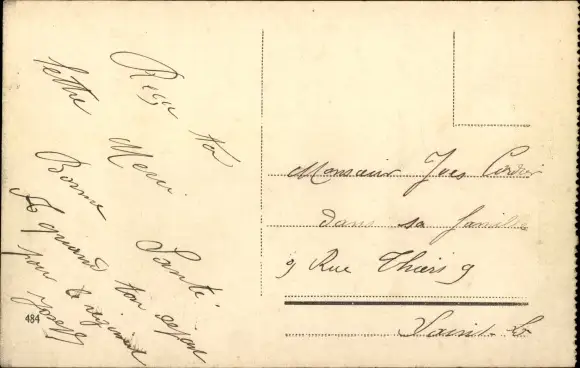 Reçu ta
lettre Merci
Bonne Santé
A quand ton départ
pour le régiment
Joseph
484
Monsieur Yves Cordier
dans sa famille
9 Rue Thiers 9
Saint-Lo